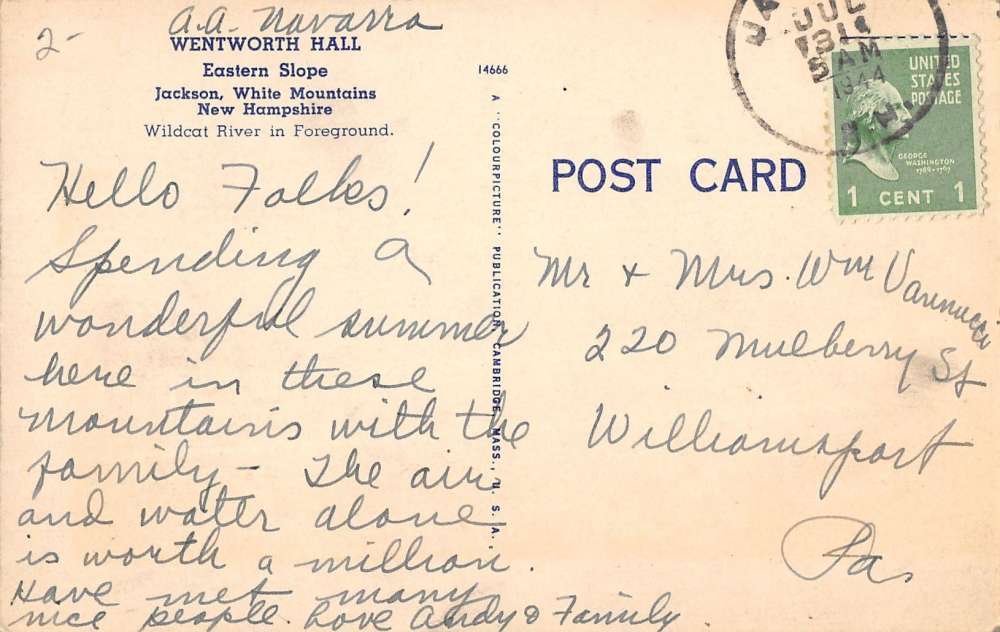 2- A.A. Navarra
WENTWORTH HALL
Eastern Slope
Jackson, White Mountains
New Hampshire
Wildcat River in Foreground.
Hello Folks!
Spending a
wonderful summer
here in these
mountains with the
family - The air
and water alone
is worth a million.
Have met many
nice people. Love Andy & Family
14666
A "COLOURPICTURE" PUBLICATION, CAMBRIDGE, MASS., U.S.A.
POST CARD
JUL
31
AM
1944
UNITED
STATES
POSTAGE
GEORGE
WASHINGTON
1789-1797
1 CENT 1
Mr & Mrs. Wm Vannucci
220 Mulberry St
Williamsport
Pa,